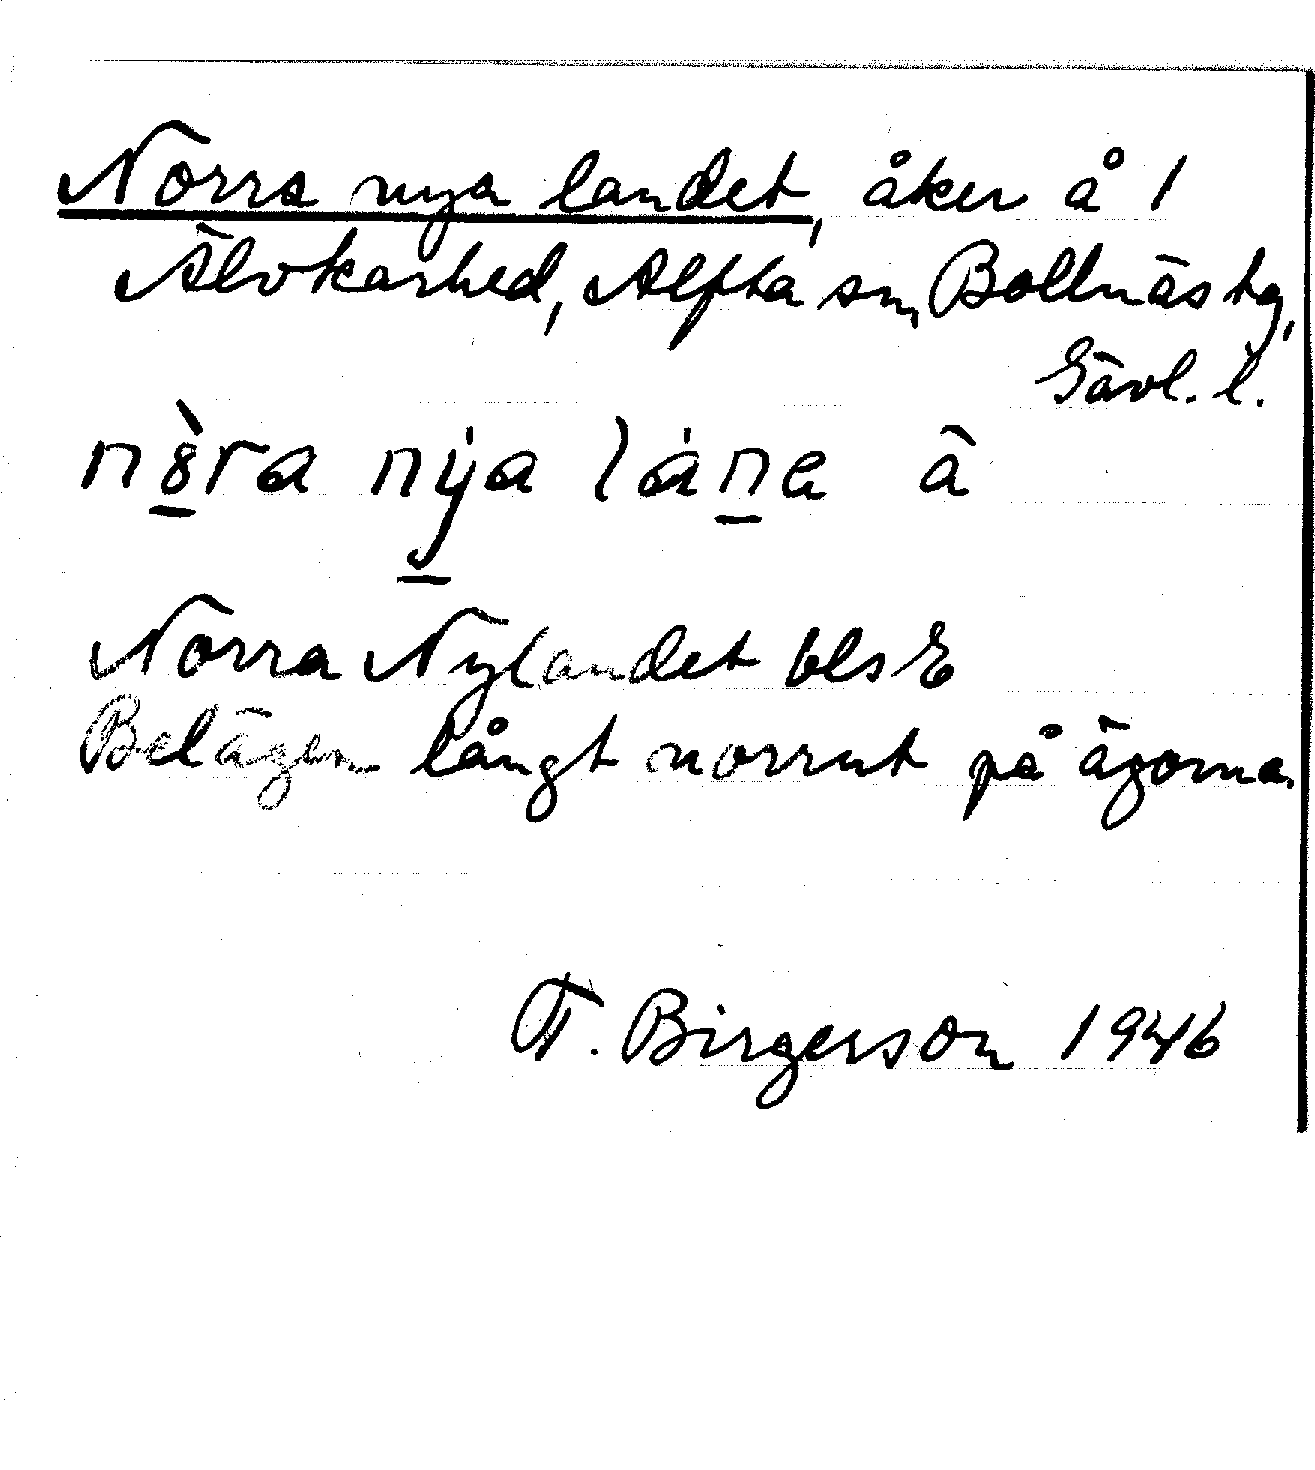 Norra nya landet, åker å 1
Älvkarhed, Alfta sn, Bollnäs tg,
Gävl. l.
n&ra nya lána ä
Norra Nylandet bls E
Belägen långt norrut på ägorna.
T. Birgerson 1946